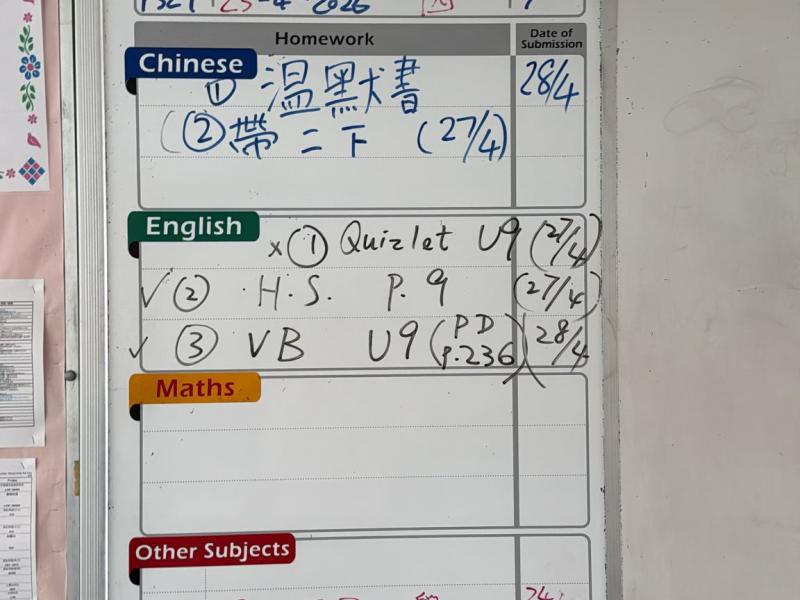 Homework Date of Submission
Chinese
① 溫默書 28/4
② 帶二下 (27/4)
English
× ① Quizlet U9 (27/4)
✓ ② H.S. P.9 (27/4)
✓ ③ VB U9 (PD P.236) 28/4
Maths
Other Subjects